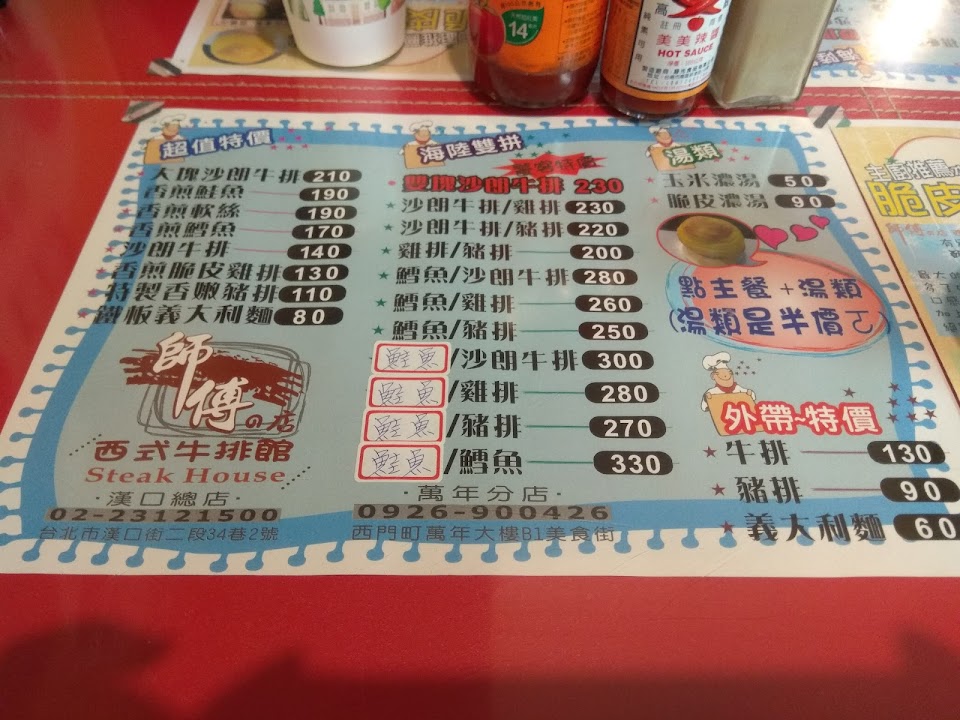 14
高
註冊
純素可用
美美辣醬
HOT SAUCE
超值特價
大塊沙朗牛排 210
香煎鮭魚 190
香煎軟絲 190
香煎鱈魚 170
沙朗牛排 140
香煎脆皮雞排 130
特製香嫩豬排 110
鐵板義大利麵 80
師傅の店
西式牛排館
Steak House
·漢口總店·
02-23121500
台北市漢口街二段34巷2號
海陸雙拼
雙塊沙朗牛排 230
沙朗牛排/雞排 230
沙朗牛排/豬排 220
雞排/豬排 200
鱈魚/沙朗牛排 280
鱈魚/雞排 260
鱈魚/豬排 250
鮭魚/沙朗牛排 300
鮭魚/雞排 280
鮭魚/豬排 270
鮭魚/鱈魚 330
·萬年分店·
0926-900426
西門町萬年大樓B1美食街
湯類
玉米濃湯 50
脆皮濃湯 90
點主餐+湯類
(湯類是半價)
外帶~特價
牛排 130
豬排 90
義大利麵 60
主廚推薦
脆皮